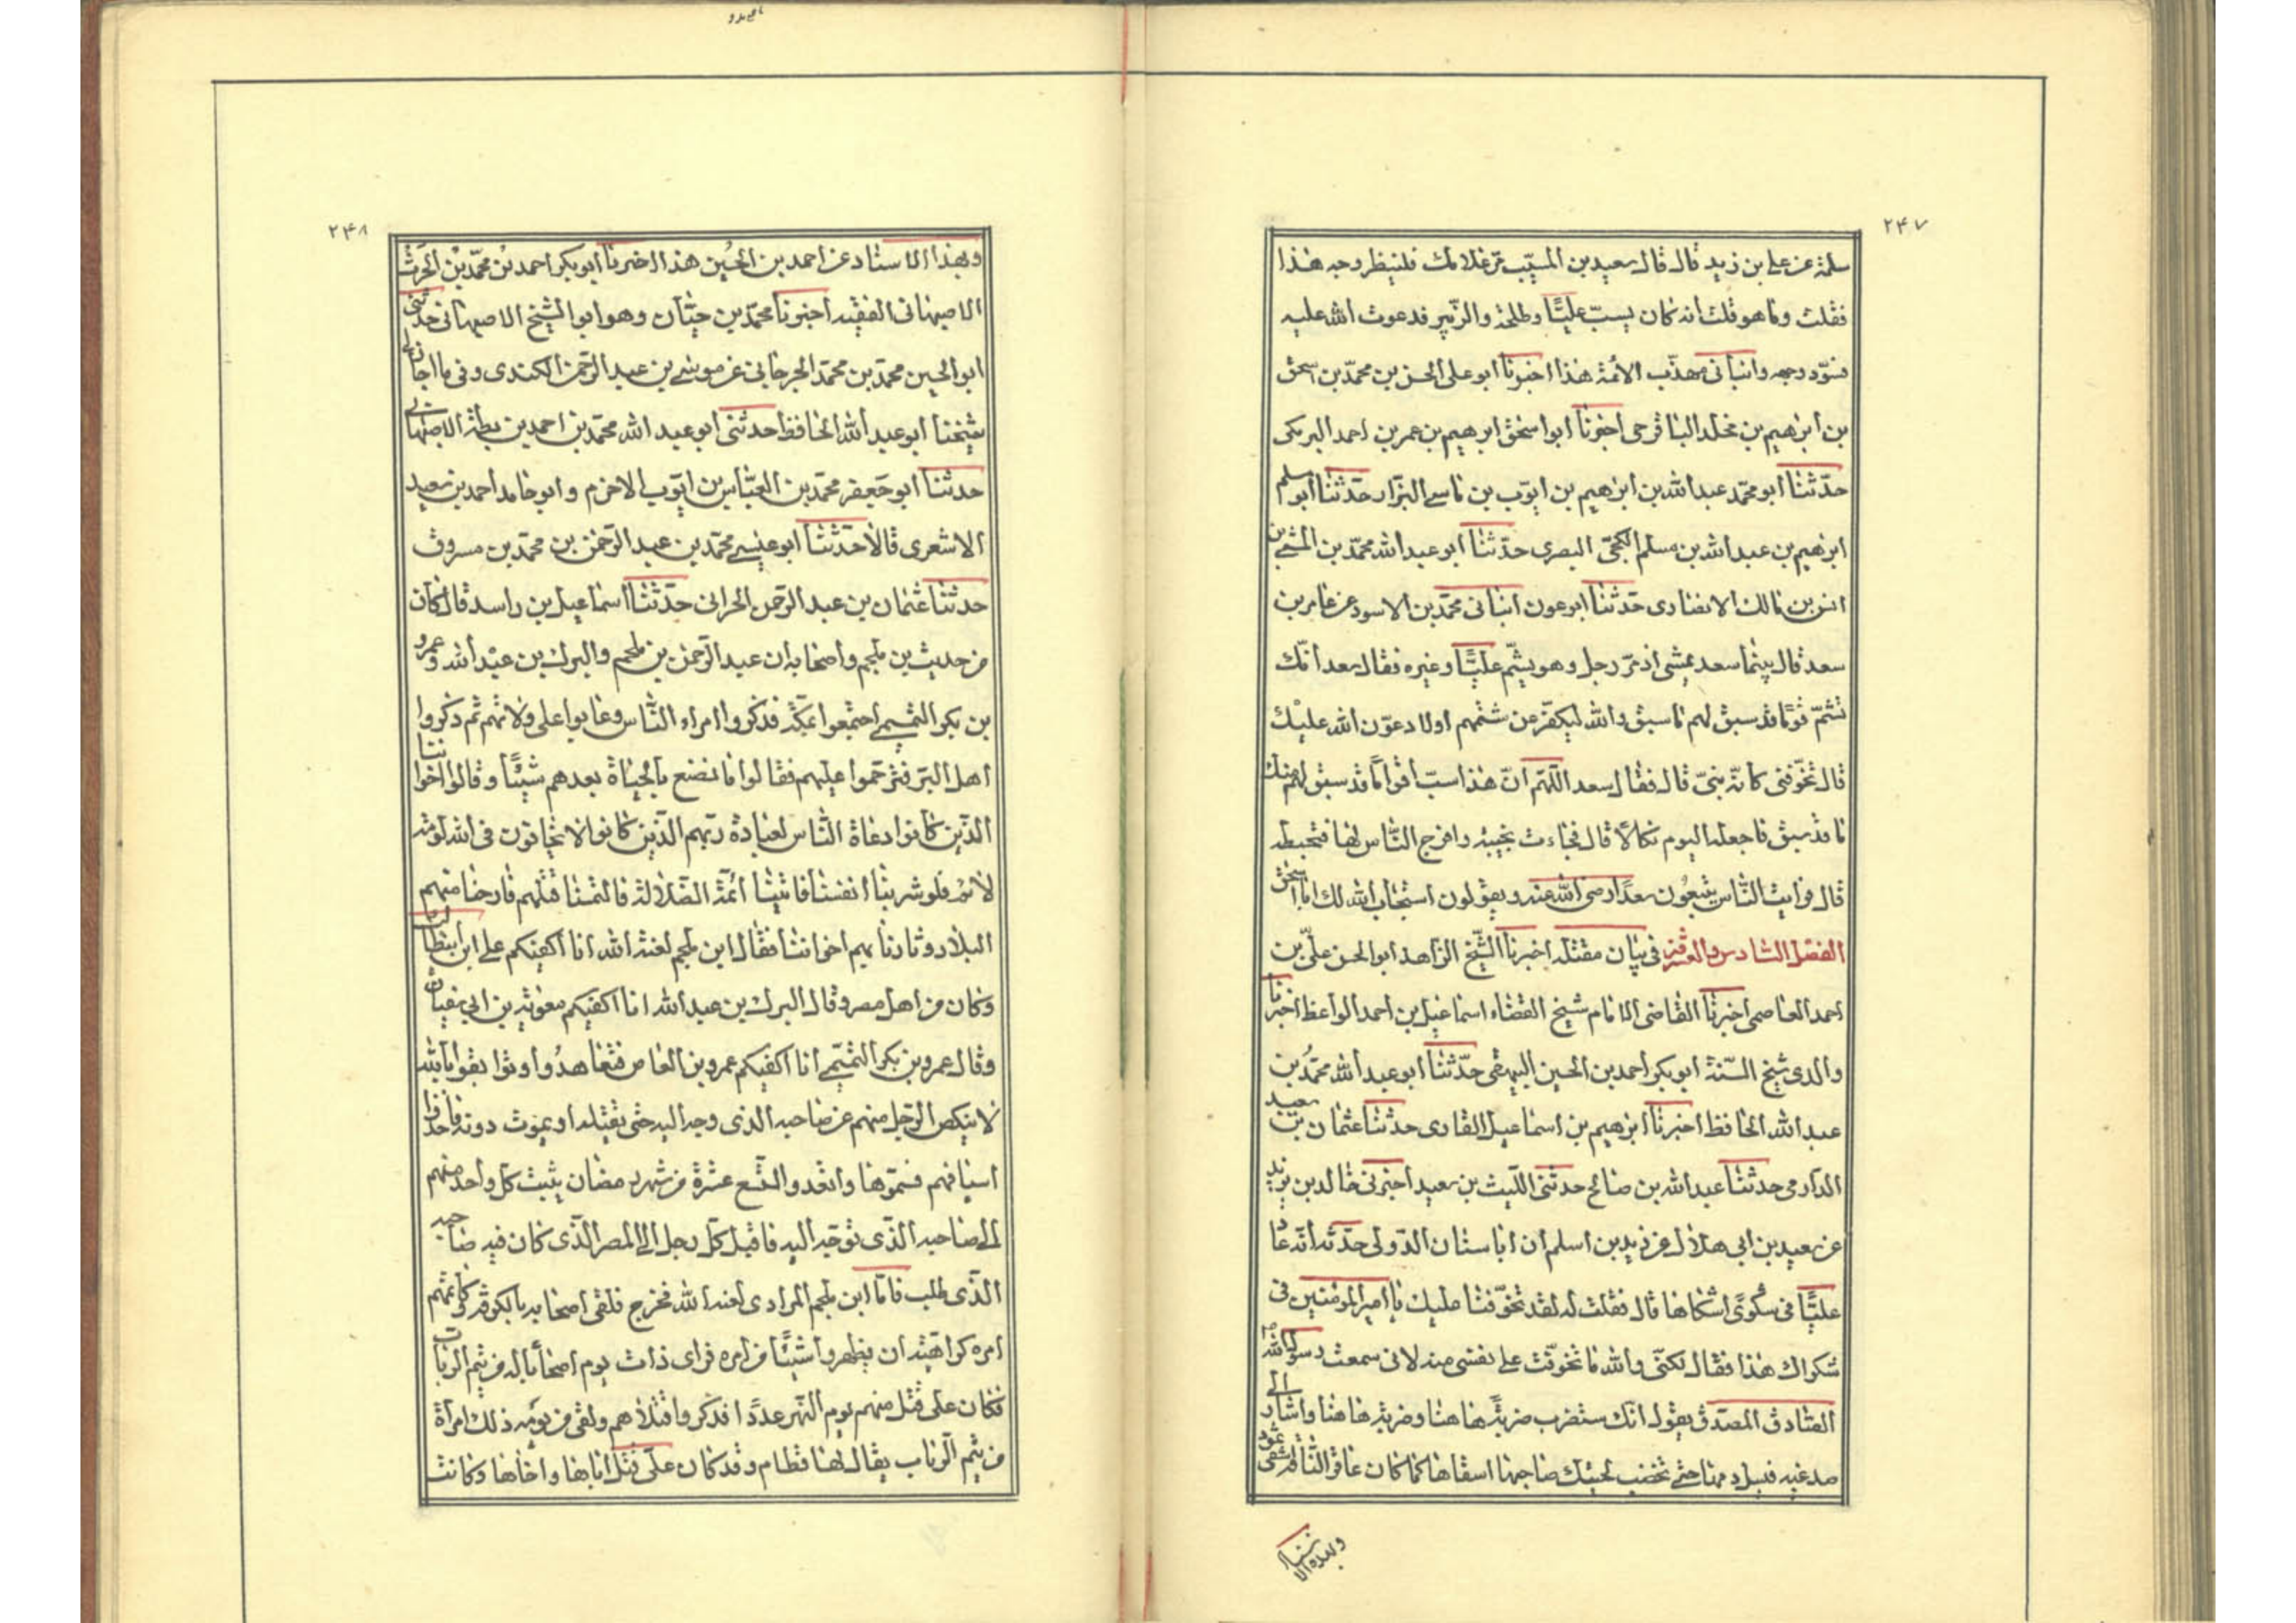 ۲۴۷
سلمة عن علي بن زيد قال قال سعيد بن المسيّب مر غلامك فلينظر وجه هذا
فقلت وما هو قلت انه كان يسبّ عليًّا وطلحة والزّبير فدعوت الله عليه
فسوّد وجهه وانبانى مهذّب الأئمة هذا اخبرنا ابو على الحسن بن محمّد بن اسحق
بن ابرهيم بن مخلد الباقرحى اخبرنا ابو اسحق ابرهيم بن عمر بن احمد البرمكى
حدّثنا ابو محمّد عبد الله بن ابرهيم بن ايوّب بن ماسى البزّار حدّثنا ابو مسلم
ابرهيم بن عبد الله بن مسلم الكجّى البصرى حدّثنا ابو عبد الله محمّد بن المثنى بن
انس بن مالك الانصارى حدّثنا ابو عون انبانى محمّد بن الاسود عن عامر بن
سعد قال بينما سعد يمشى اذ مرّ رجل وهو يشتم عليًّا وغيره فقال سعد انّك
تشتم قومًا قد سبق لهم ما سبق والله ليكفّرن عن شتمهم اولا دعوّن الله عليك
قال تخوّفنى كانّه نبىّ قال فقال سعد اللّهمّ انّ هذا سبّ اقوامًا قد سبق لهم منك
ما قد سبق فاجعله اليوم نكالًا قال فجاءت بختيه وافرج النّاس لها فتخبطه
قال فرايت النّاس يتبعون سعدًا رضى الله عنه ويقولون استجاب الله لك ابا اسحق
الفصل السّادس والعشرون فى بيان مقتله اخبرنا الشّيخ الزاهد ابو الحسن علىّ بن
احمد العاصمى اخبرنا القاضى الامام شيخ القضاه اسماعيل بن احمد الواعظ اخبرنا
والدى شيخ السّنة ابو بكر احمد بن الحسين البيهقى حدّثنا ابو عبد الله محمّد بن
عبد الله الحافظ اخبرنا ابرهيم بن اسماعيل القارى حدثنا عثمان بن سعيد
الدّارمى حدثنا عبد الله بن صالح حدثنى اللّيث بن سعيد اخبرنى خالد بن يزيد
عن سعيد بن ابى هلال عن زيد بن اسلم ان ابا سنان الدّولى حدّثه انّه عاد
عليًّا فى شكوًى اشتكاها قال فقلت له لقد تخوّفنا عليك يا امير المومنين فى
شكواك هذا فقال لكنّى والله ما تخوّفت على نفسى منه لانى سمعت رسول الله
الصّادق المصدّق يقول انك ستضرب ضربةً هاهنا وضربة هاهنا واشار الى
صدغيه فيسيل دمها حتى تخضب لحيتك صاحبها اشقاها كما كان عاقر النّاقة اشقى ثمود
وبهذا الاسناد
۲۴۸
وبهذا الاسناد عن احمد بن الحسين هذا اخبرنا ابو بكر احمد بن محمّد بن الحرث
الاصبهانى الفقيه اخبرنا محمّد بن حيّان وهو ابو الشيخ الاصبهانى حدثنى
ابو الحسين محمد بن محمّد الجرجانى عن موسى بن عبد الرّحمن الكندى وفى ما اجاز لى
شيخنا ابو عبد الله الحافظ حدثنى ابو عبد الله محمّد بن احمد بن بطّة الاصبهانى
حدثنا ابو جعفر محمّد بن العبّاس بن ايّوب الاخرم وابو حامد احمد بن سعيد
الاشعرى قالا حدّثنا ابو عيسى محمّد بن عبد الرّحمن بن محمّد بن مسروق
حدثنا عثمان بن عبد الرّحمن الحرانى حدّثنا اسماعيل بن راسد قال كان
من حديث بن ملجم واصحابه ان عبد الرّحمن بن ملجم والبرك بن عبد الله وعمرو
بن بكر التّميمى اجتمعوا بمكّة فذكروا امراء النّاس وعابوا على ولاتهم ثم ذكروا
اهل النهر فترحّموا عليهم فقالوا ما نصنع بالحياة بعدهم شيئًا وقالوا اخواننا
الّذين كانوا دعاة النّاس لعبادة ربّهم الّذين كانوا لا يخافون فى الله لومة
لائم فلو شرينا انفسنا فاتينا ائمّة الضّلالة فالتمسنا قتلهم فارحنا منهم
البلاد وثارنا بهم اخواننا فقال ابن ملجم لعنة الله انا اكفيكم على ابن ابيطالب
وكان من اهل مصر وقال البرك بن عبد الله انا اكفيكم معوية بن ابي سفيان
وقال عمرو بن بكر التّميمى انا اكفيكم عمرو بن العاص فتعاهدوا وتواثقوا بالله
لا ينكص الرّجل منهم عن صاحبه الذى وجه اليه حتى يقتله او يموت دونه فاخذوا
اسيافهم فسمّوها واتعدوا لتسع عشرة من شهر رمضان يثبت كلّ واحد منهم
الى صاحبه الّذى توجّه اليه فاقبل كلّ رجل الى المصر الّذى كان فيه صاحبه
الّذى طلب فامّا ابن ملجم المرادى لعنه الله فخرج فلقى اصحابه بالكوفة وكاتمهم
امره كراهيّة ان يظهروا شيئًا من امره فراى ذات يوم اصحابًا له من تيم الرباب
فكان على قتل منهم يوم النّهر عددًا فذكروا قتلاهم ولقى من يومه ذلك امرأة
من تيم الرّباب يقال لها قطام وقد كان علىّ قتل اباها واخاها وكانت